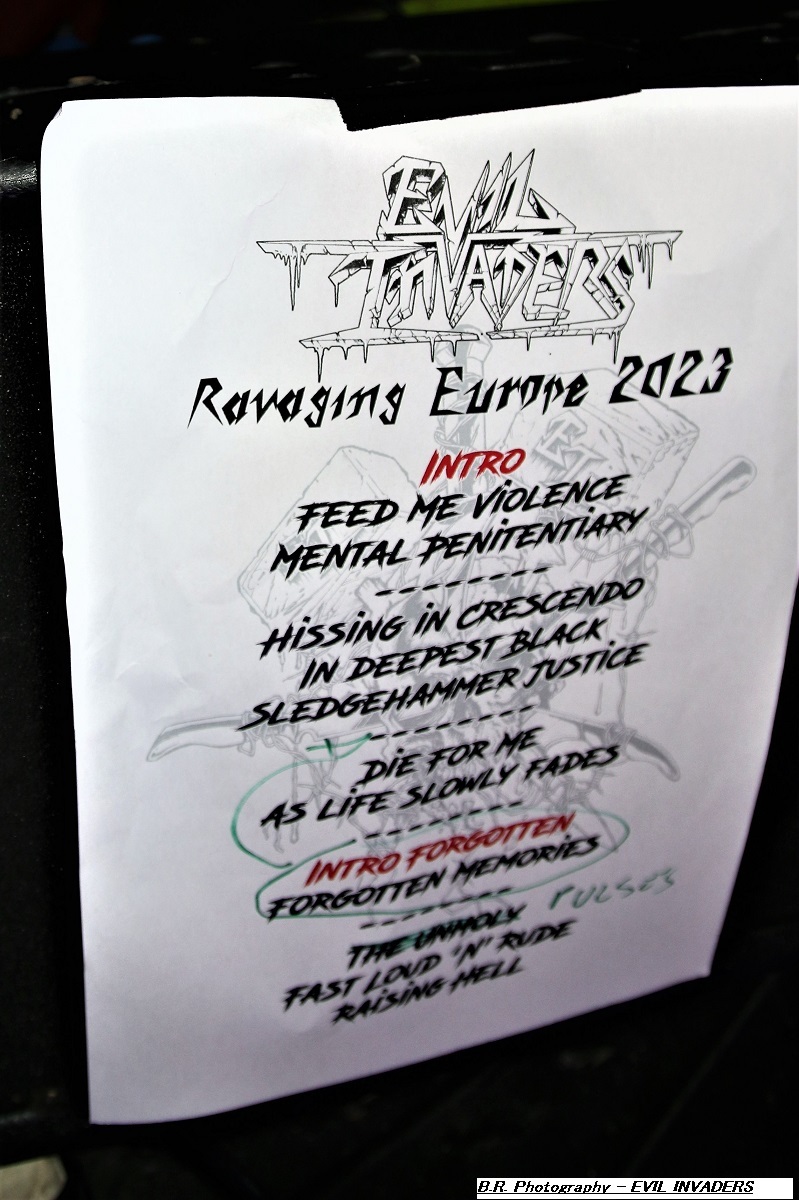 EVIL
INVADERS
Ravaging Europe 2023
INTRO
FEED ME VIOLENCE
MENTAL PENITENTIARY
--------
HISSING IN CRESCENDO
IN DEEPEST BLACK
SLEDGEHAMMER JUSTICE
--------
DIE FOR ME
AS LIFE SLOWLY FADES
--------
INTRO FORGOTTEN
FORGOTTEN MEMORIES
--------
THE UNHOLY PULSES
FAST LOUD 'N' RUDE
RAISING HELL
B.R. Photography - EVIL INVADERS